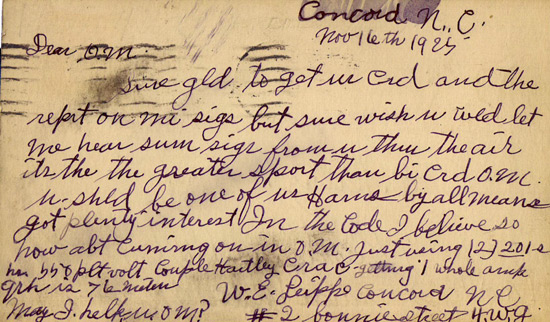 Concord N.C.
Nov 16th 1925
Dear O.M.
Sure gld to get ur Crd and the
reprt on mi sigs but sure wish u wld let
me hear sum sigs from u thru the air
its the the greater sport than bi Crd O.M.
u shld be one of us Hams by all means
got plenty interest In the Code I believe so
how abt Cuming on in O.M. Just using (2) 201-s
hr 550 plt volt Couple Hartley getting 1 whole amp
qrh is 76 meters W.E. Leippe Concord N.C.
May I help u O.M? #2 bonnie street